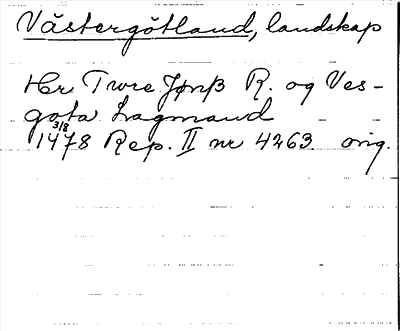 Västergötland, landskap
Her Twre Jønß R. og Ves-
gota Lagmand
3/8
1478 Rep. II nr 4263 orig.